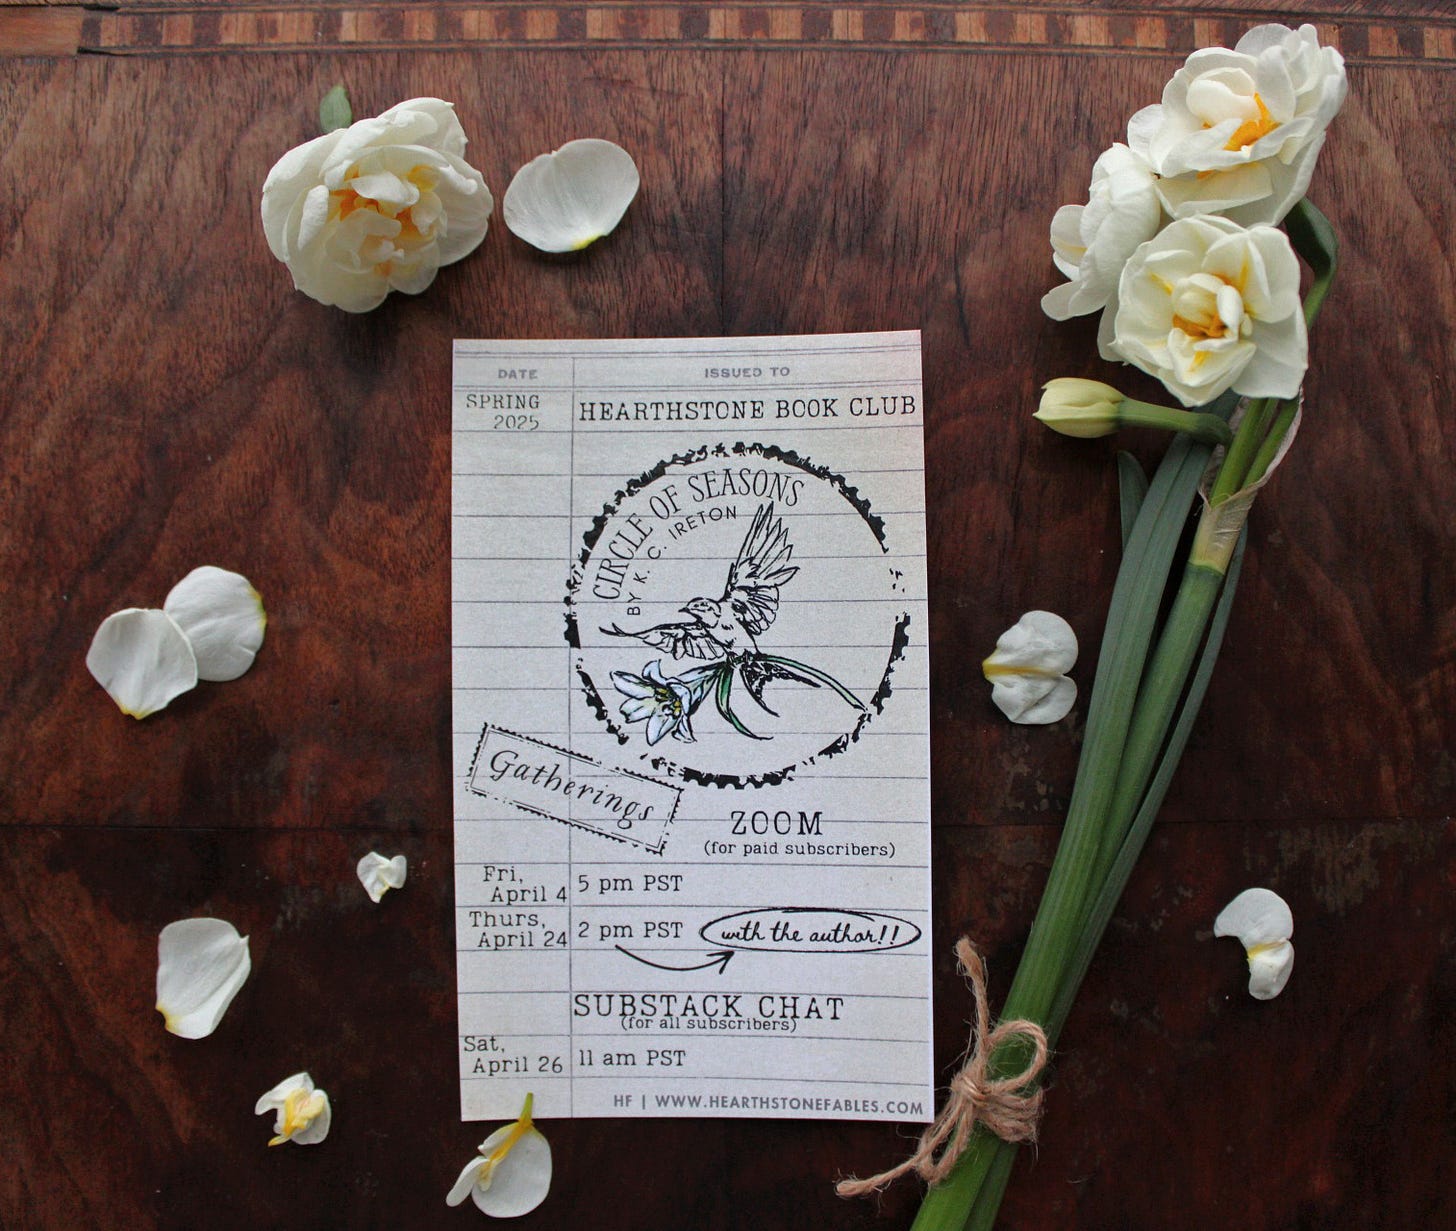 DATE ISSUED TO
SPRING
2025
HEARTHSTONE BOOK CLUB
CIRCLE OF SEASONS
BY K. C. IRETON
Gatherings
ZOOM
(for paid subscribers)
Fri,
April 4
5 pm PST
Thurs,
April 24
2 pm PST with the author!!
SUBSTACK CHAT
(for all subscribers)
Sat,
April 26
11 am PST
HF | WWW.HEARTHSTONEFABLES.COM